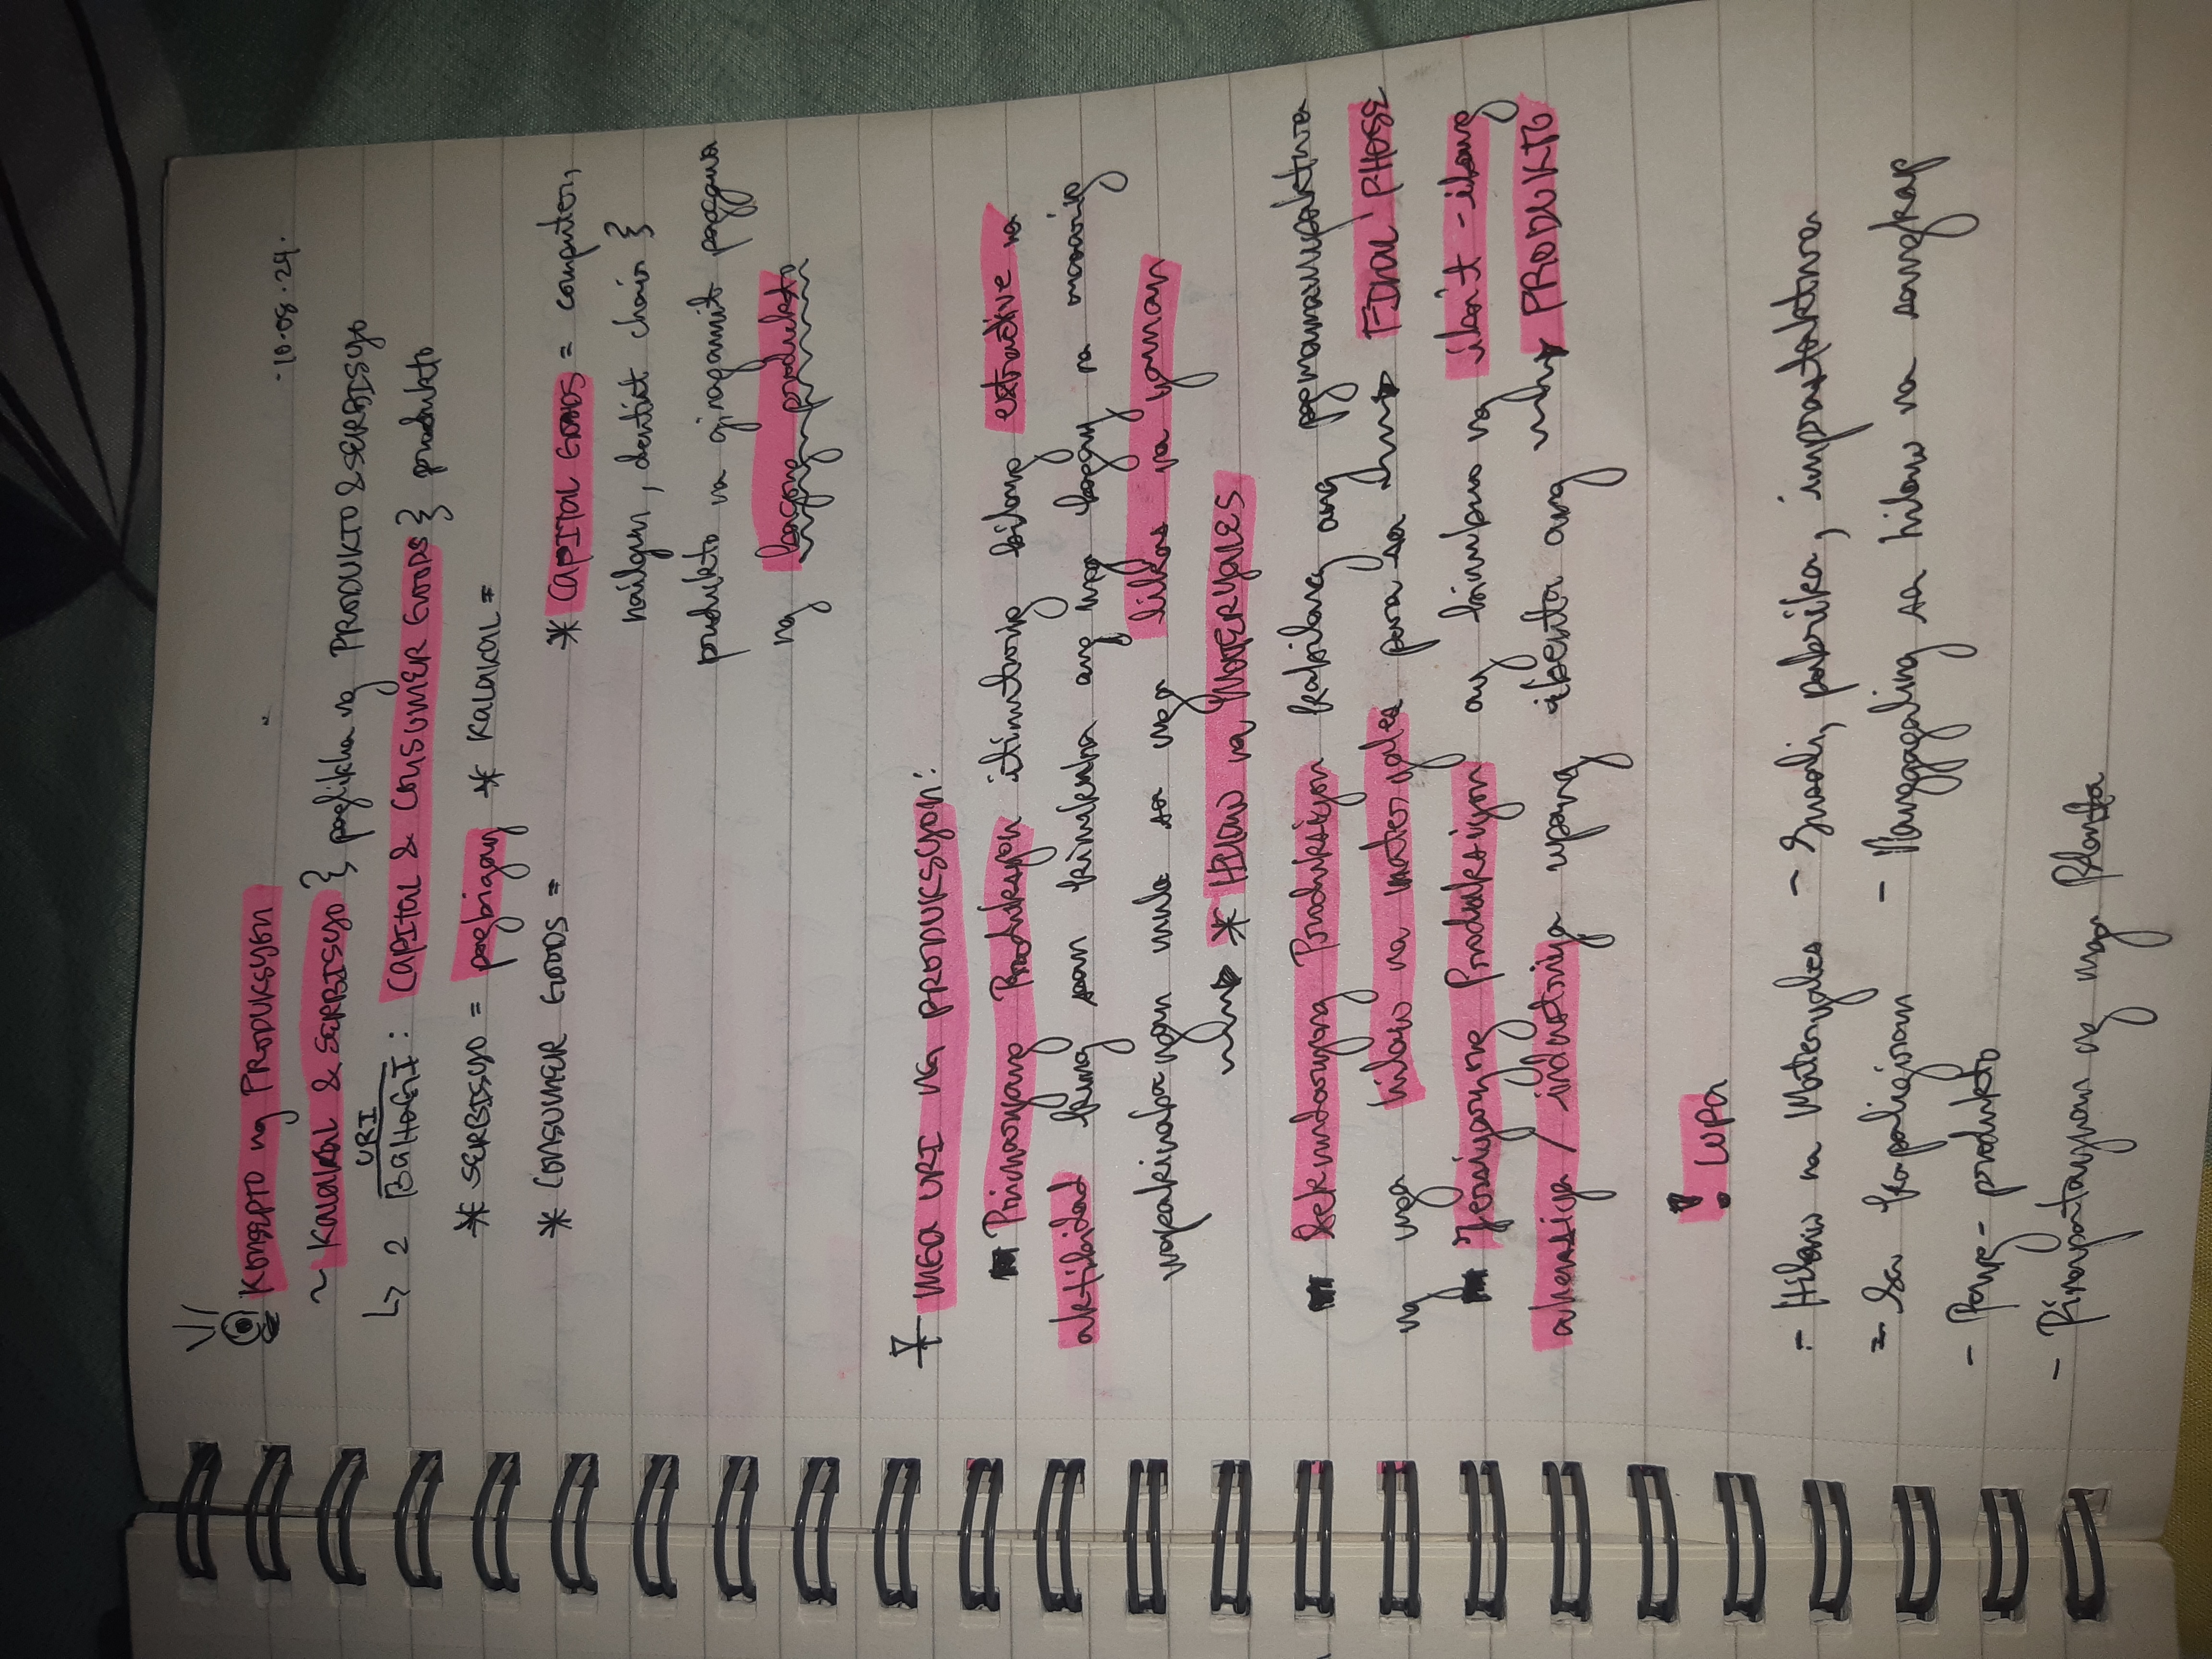 KONSEPTO ng PRODUKSYON
·10·08·24·
~ KALAKAL & SERBISYO } paglikha ng PRODUKTO & SERBISYO
URI
↳ 2 BAHAGI : CAPITAL & CONSUMER GOODS } produkto
* SERBISYO = pagbigay * KALAKAL =
* CONSUMER GOODS = * CAPITAL GOODS = computer,
nailgun, dentist chair }
produkto na ginagamit paggawa
ng bagong produkto
MGA URI NG PRODUKSYON:
Primaryang Produksyon itinuturig bilang extractive na
aktibidad kung saan kinukuha ang mga bagay na maarig
mapakinabangan mula sa mga likas na yaman
* HILAW na MATERYALES
Sekundaryang Produksiyon kabilang ang pgmamanupaktura
ng mga hilaw na materyales para sa FINAL PHASE
Tersiyaryong Produksiyon ay binubuo ng iba't -ibang
ahensiya / industriya upang ibenta ang PRODUKTO
! LUPA
- Hilaw na Materyales - Gusali, pabrika, imprastaktura
- Sa kapaligiran - Nanggagaling sa hilaw na sangkap
- Pang- produkto
- Pinapatayuan ng mga Planta